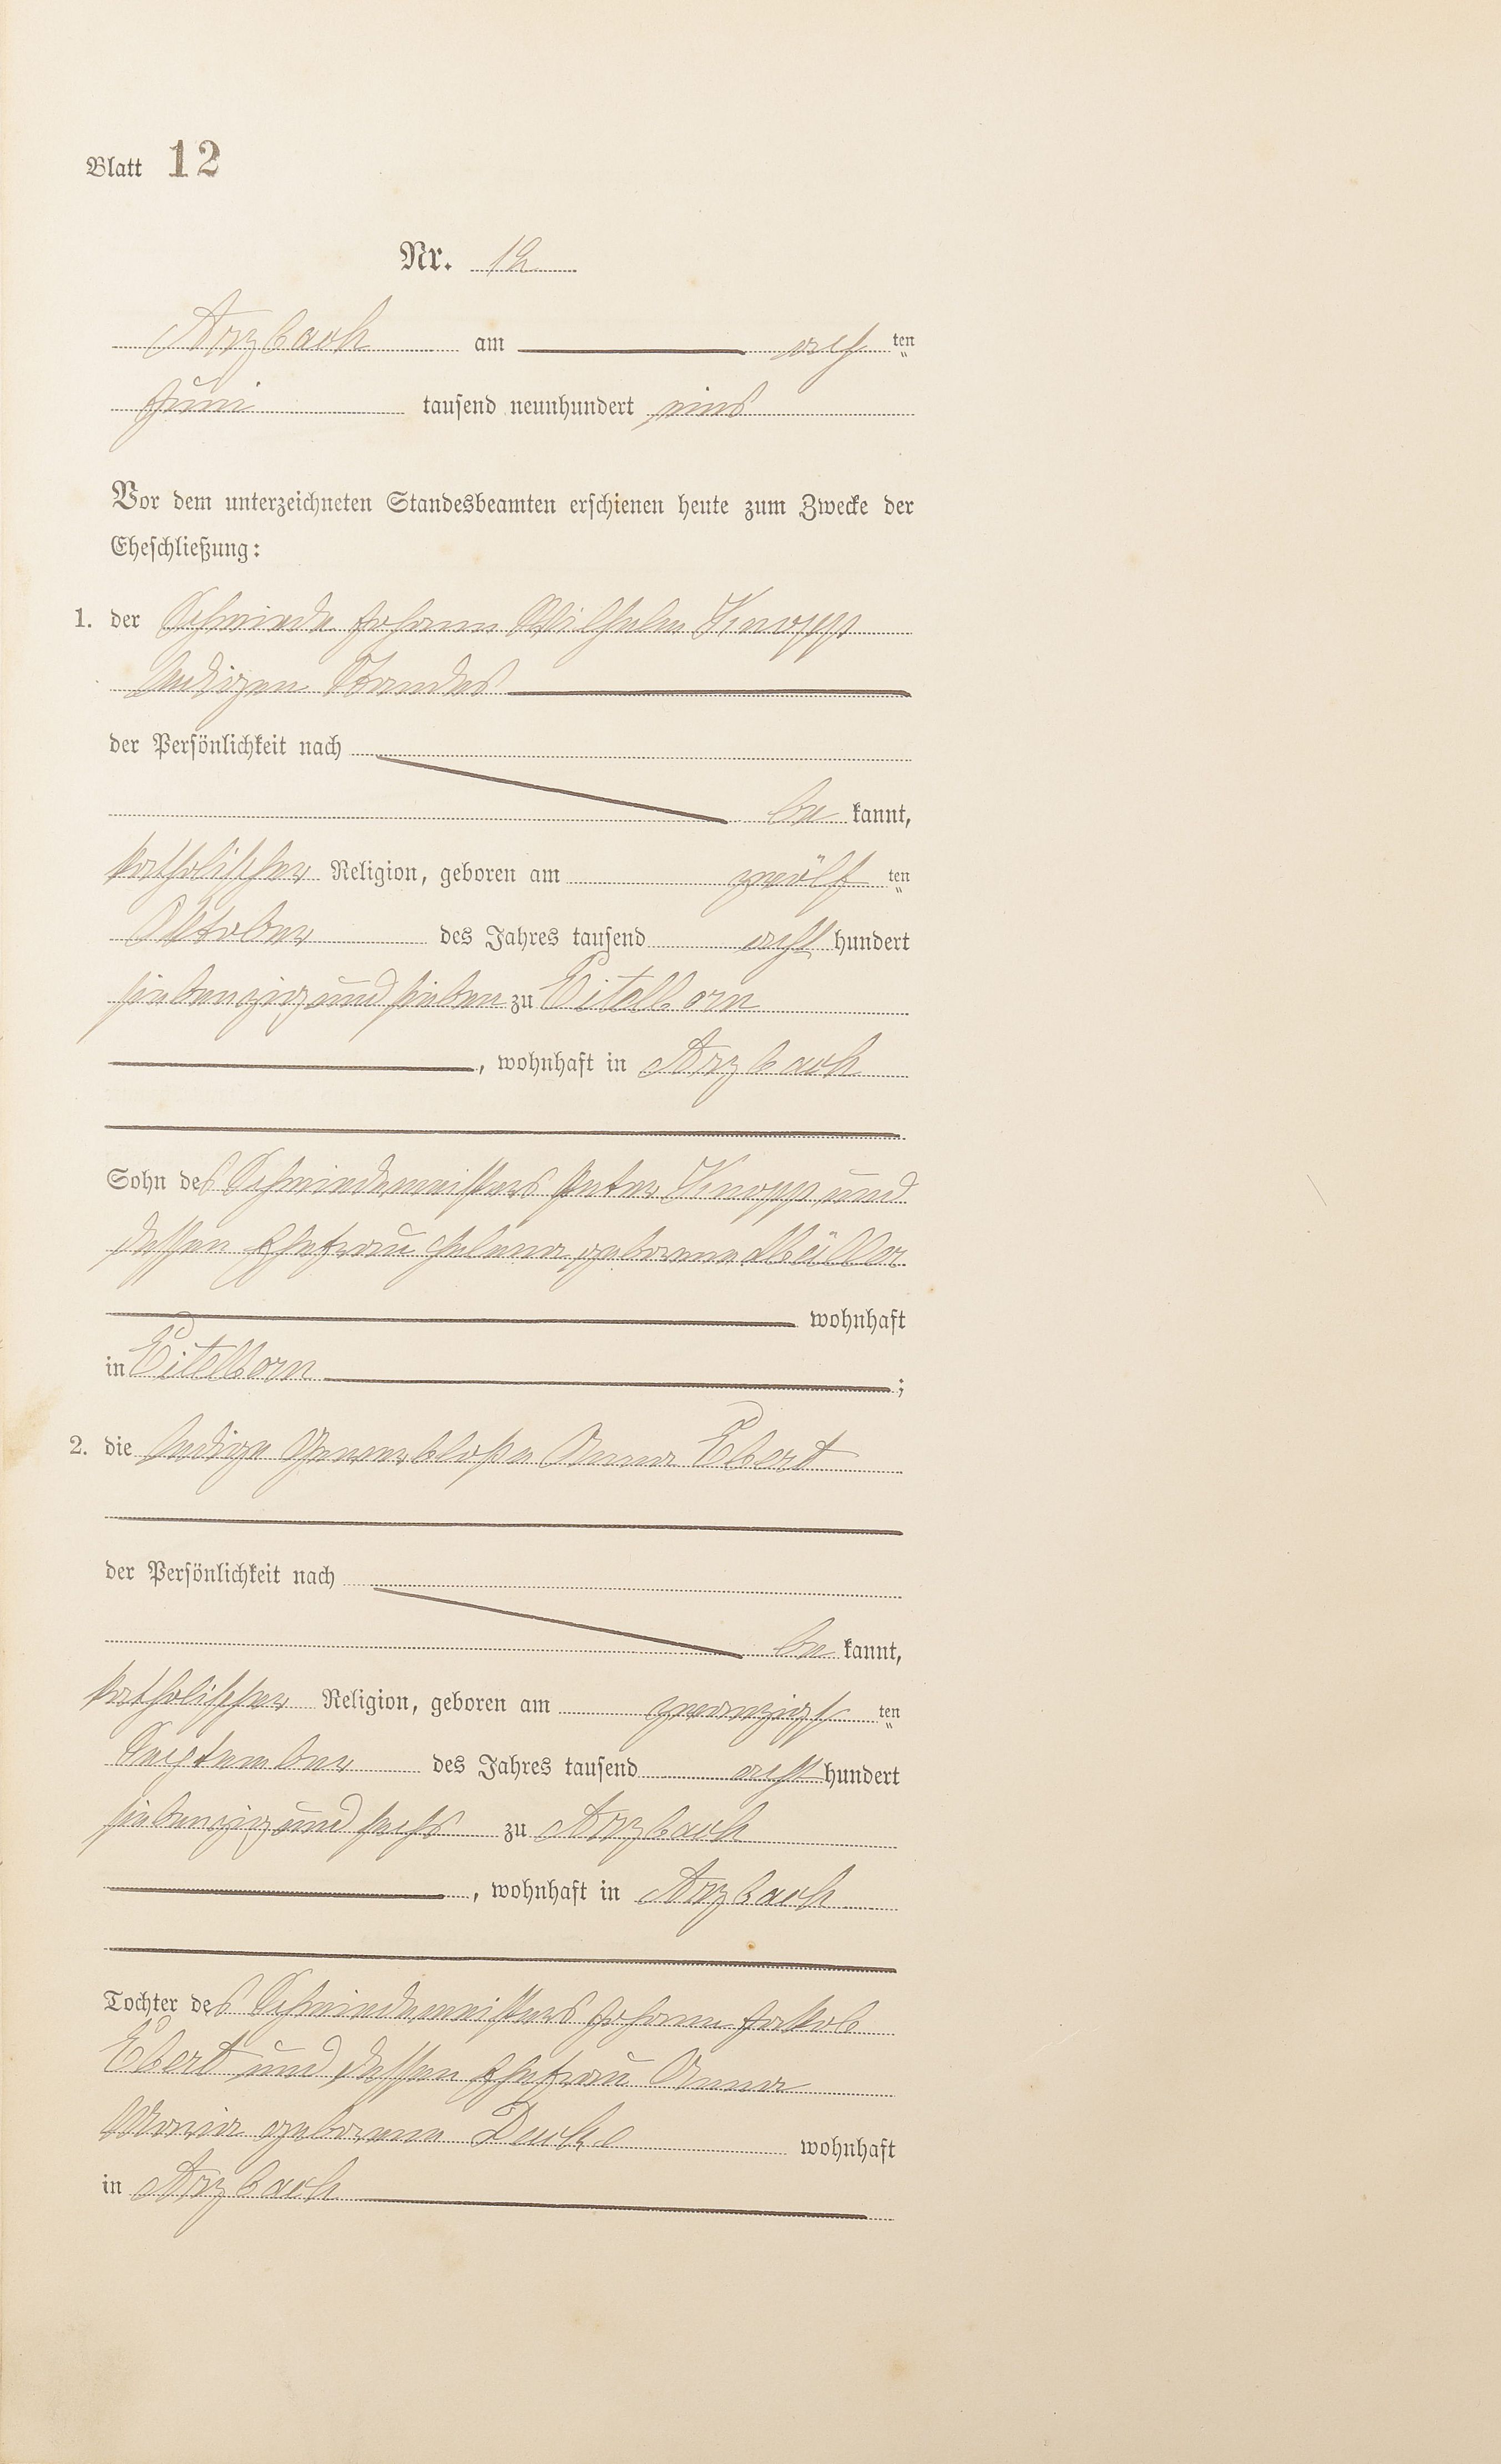 Blatt 12
Nr. 12
Arzbach am acht ten
Juni tausend neunhundert eins
Vor dem unterzeichneten Standesbeamten erschienen heute zum Zwecke der
Eheschließung:
1. der Schmiede Johann Wilhelm Knopp
ledigen Standes
der Persönlichkeit nach
be kannt,
katholischer Religion, geboren am zwölf ten
Oktober des Jahres tausend acht hundert
siebenzig und sieben zu Eitelborn
, wohnhaft in Arzbach
Sohn des Schmiedemeisters Peter Knopp und
dessen Ehefrau Helena geborene Müller
wohnhaft
in Eitelborn ;
2. die ledige Gewerblose Anna Ebert
der Persönlichkeit nach
be kannt,
katholischer Religion, geboren am zwanzigs ten
September des Jahres tausend acht hundert
siebenzig und sechs zu Arzbach
, wohnhaft in Arzbach
Tochter des Schmiedemeisters Johann Jakob
Ebert und dessen Ehefrau Anna
Maria geborene wohnhaft
in Arzbach